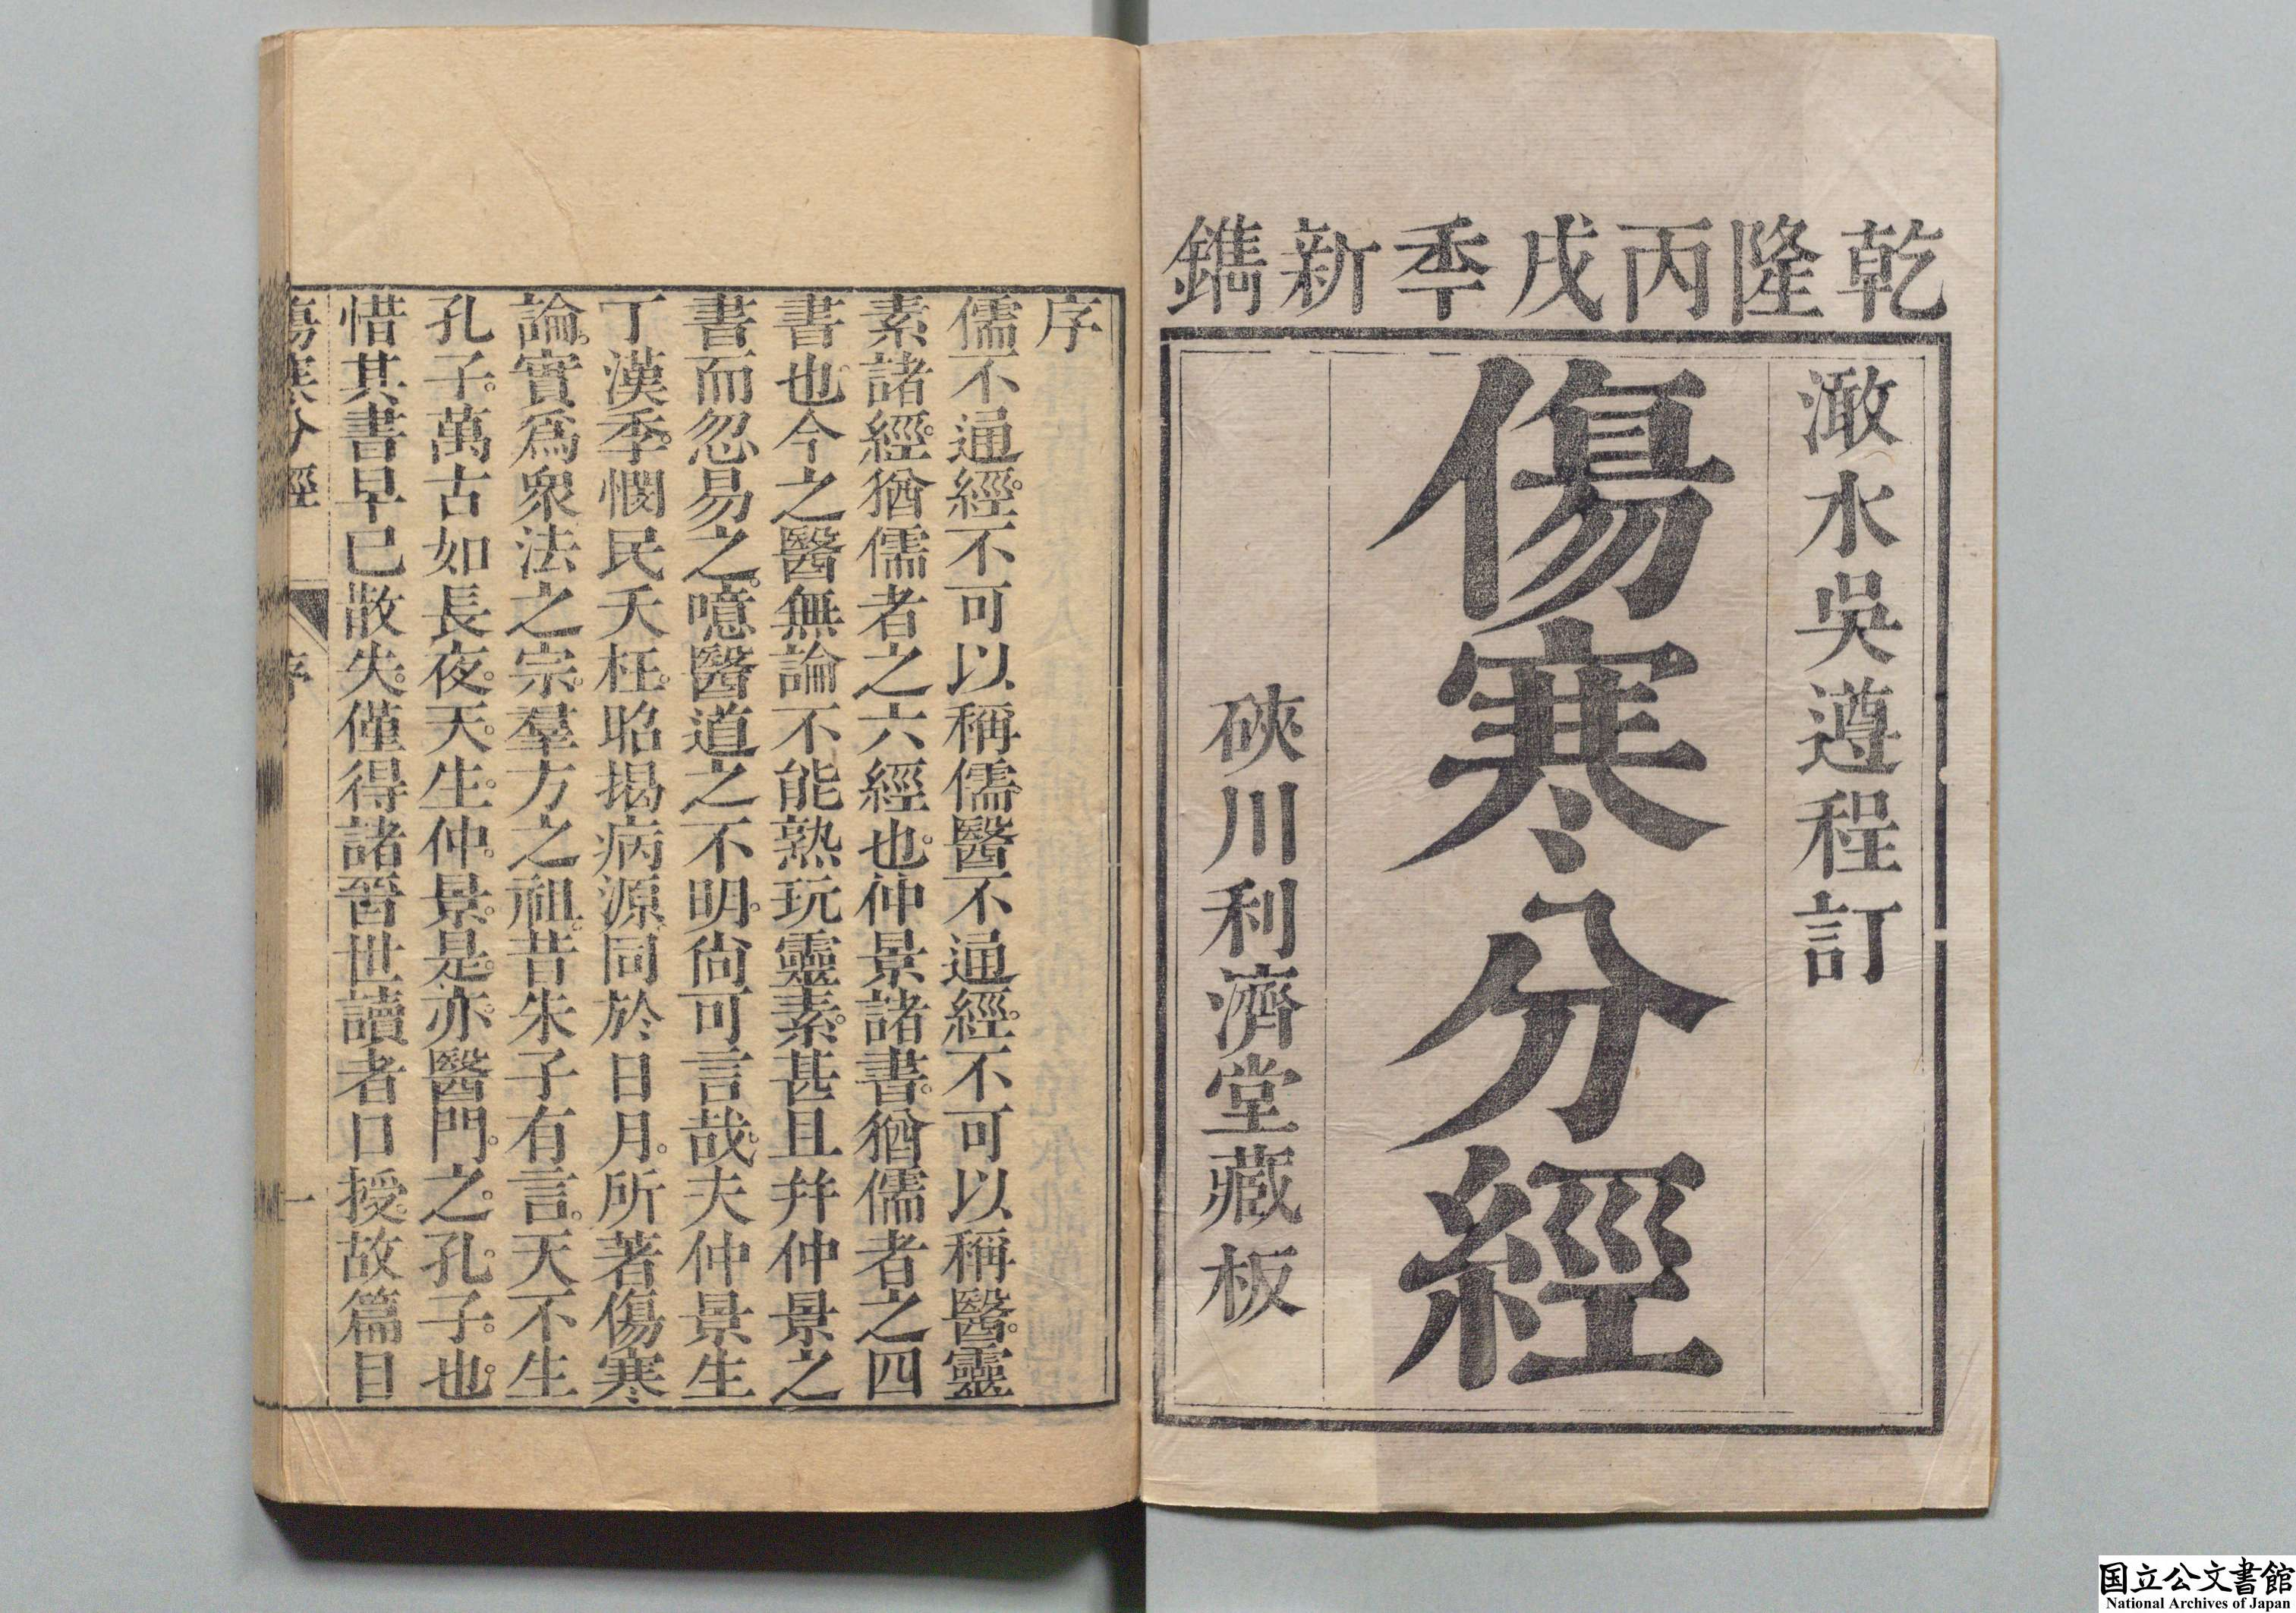 乾隆丙戌季新鐫
澉水吳遵程訂
傷寒分經
硤川利濟堂藏板
序
儒不通經。不可以稱儒醫不通經。不可以稱醫。靈
素諸經。猶儒者之六經也。仲景諸書。猶儒者之四
書也。今之醫無論不能熟玩靈素。甚且幷仲景之
書而忽易之。噫醫道之不明。尙可言哉。夫仲景生
丁漢季。憫民夭枉。昭揭病源。同於日月。所著傷寒
論。實爲衆法之宗。羣方之祖。昔朱子有言。天不生
孔子。萬古如長夜。天。生。仲。景。是。亦。醫門。之。孔。子。也。
惜其書早已散失。僅得諸晉世讀者口授。故篇目
傷寒分經
序
一
国立公文書館
National Archives of Japan